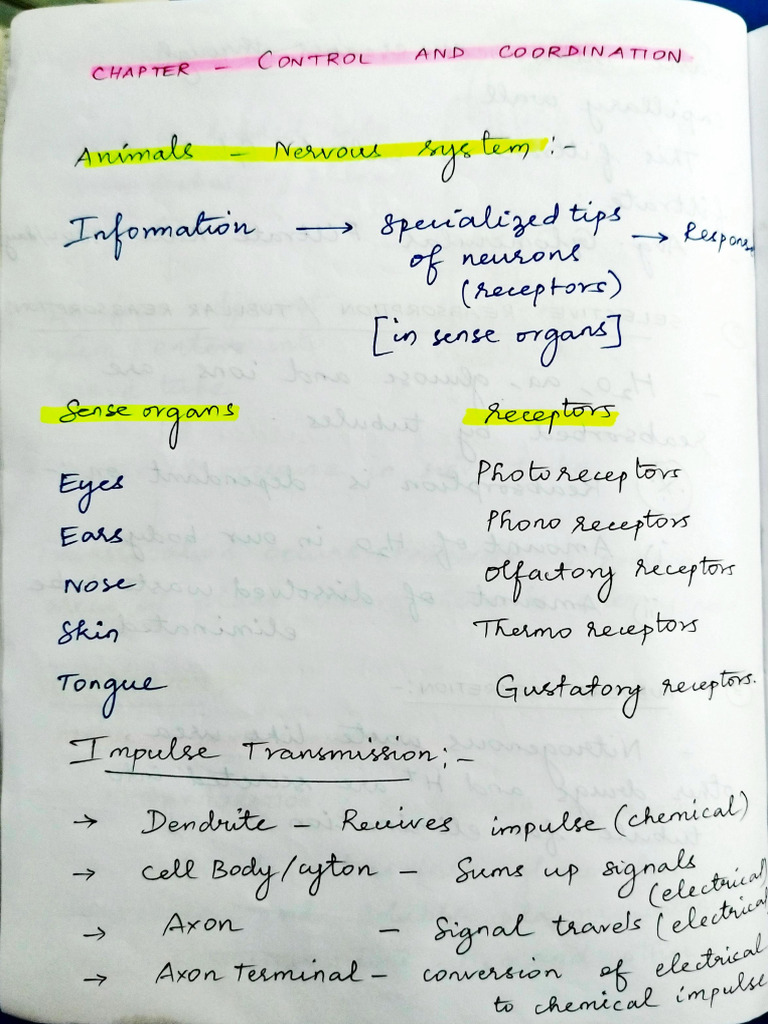 CHAPTER – CONTROL AND COORDINATION
Animals – Nervous system :-
Information → specialized tips → Respons
of neurons
(receptors)
[in sense organs]
Sense organs receptors
Eyes Photoreceptors
Ears Phono receptors
Nose Olfactory receptors
Skin Thermo receptors
Tongue Gustatory receptors.
Impulse Transmission :-
→ Dendrite – Recives impulse (chemical)
→ Cell Body/cyton – Sums up signals
(electrical)
→ Axon – Signal travels (electrical
→ Axon Terminal – conversion of electrical
to chemical impulse